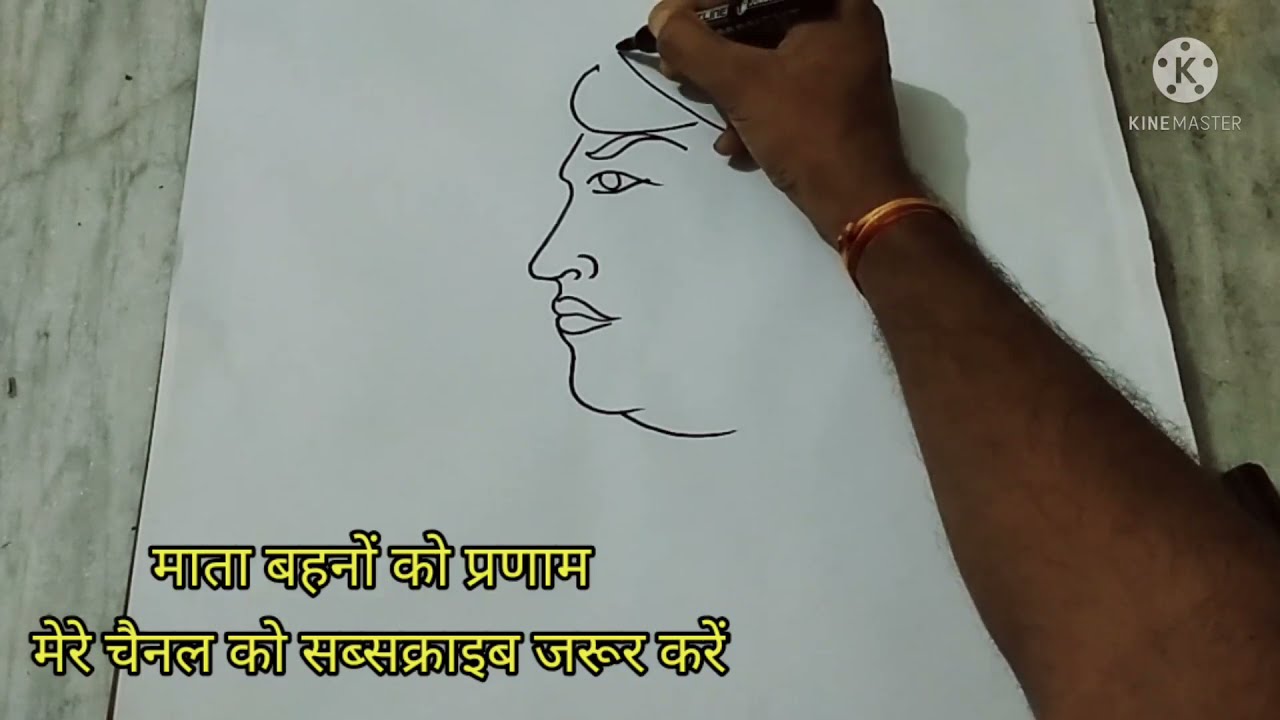 KINEMASTER
माता बहनों को प्रणाम
मेरे चैनल को सब्सक्राइब जरूर करें